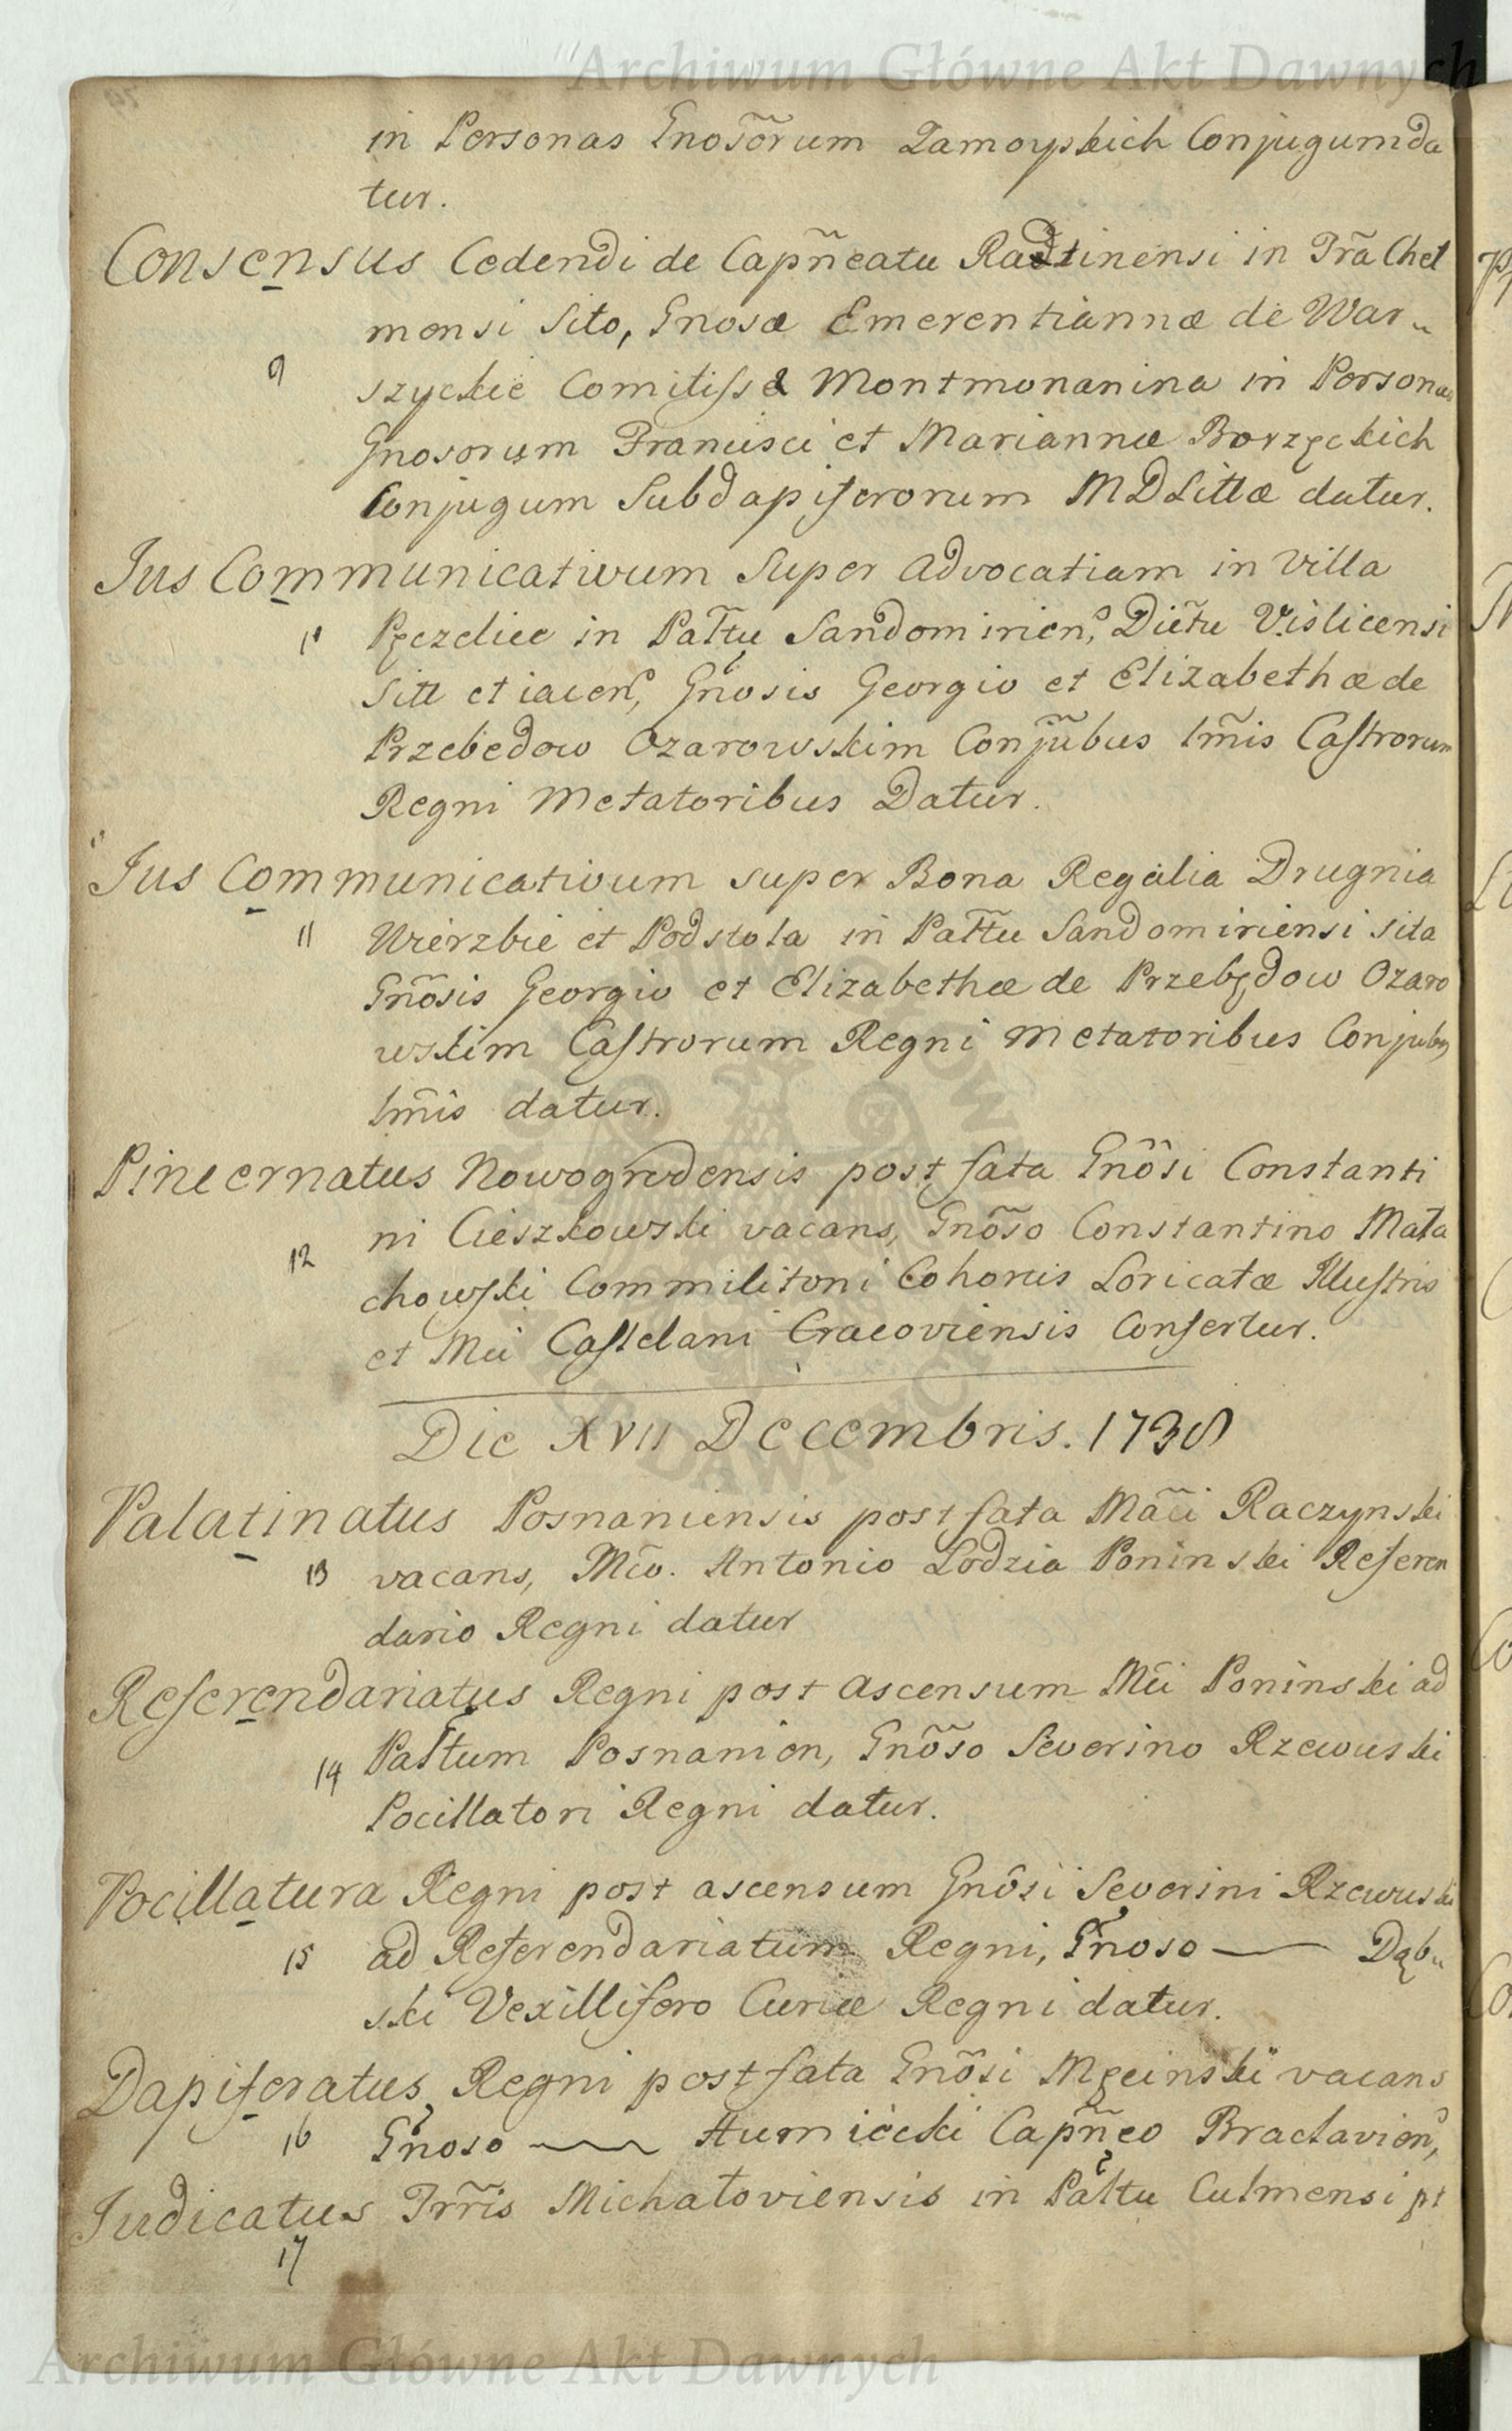 Archiwum Główne Akt Dawnych
in Personas Gnosõrum Zamoyskich Conjugum da
tur.
Consensus Cedendi de Capñeatu Radtinensi in Trã Chel
mensi Sito, Gnosæ Emerentiannæ de War„
9
szyckie Comitissæ Montmonanina in Personas
Gnosorum Francisci et Mariannæ Borzęckich
Conjugum Subdapiferorum MDLittæ datur.
Jus Communicativum Super advocatiam in Villa
10 Pęczelice in Pałtu Sandomirien, Dictu Vislicensi
Sitt et iacen, Gñosis Georgio et Elizabethæ de
Przebędow Ozarowskim Conjũbus Imis Castrorum
Regni Metatoribus Datur.
Jus Communicativum super Bona Regalia Drugnia
11 Wierzbie et Podstoła in Pałtu Sandomiriensi sita
Gnõsis Georgio et Elizabethæ de Przebędow Ozaro
wskim Castrorum Regni Metatoribus Conjubus
Imis datur.
Pincernatus Nowogrodensis post fata Gnõsi Constanti
12 ni Cieszkowski vacans, Gnõso Constantino Mała
chowski Commilitoni Cohortis Loricatæ Illustris
et Mci Castelani Cracoviensis Confertur.
Die XVII Decembris. 1738
Palatinatus Posnaniensis post fata Mãci Raczynski
13 vacans, Mco. Antonio Lodzia Poninski Referen
dario Regni datur
Referendariatus Regni post ascensum Mci Poninski ad
14 Pałtum Posnanien, Gnõso Severino Rzewuski
Pocillatori Regni datur.
Pocillatura Regni post ascensum Gnõsi Severini Rzewuski
15 ad Referendariatum Regni, Gñoso —— Dąbu
ski Vexillifero Curiæ Regni datur.
Dapiferatus Regni post fata Gnõsi Męcinski vacans
16 Gñoso —— Humiecki Capñeo Braclavien,
Judicatus Trris Michałoviensis in Pałtu Culmensi pt
17
Archiwum Główne Akt Dawnych